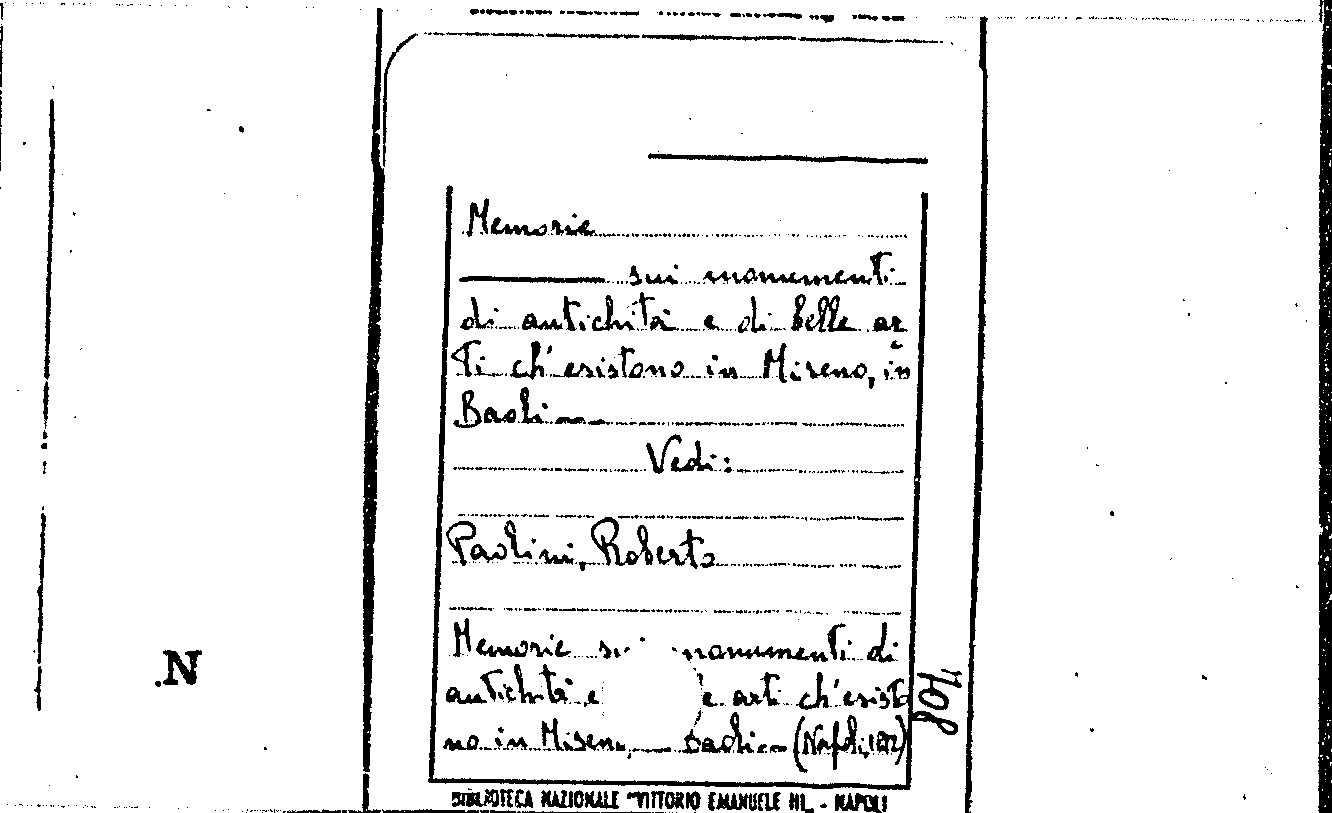 BIBLIOTECA NAZIONALE VITTORIO EMANUELE III - NAPOLI
Memorie
sui monumenti
di antichità e di belle ar
ti ch'esistono in Miseno, in
Baoli
Vedi:
Paolini, Roberto
Memorie su monumenti di
antichità e e arti ch'esisto
no in Miseno, Baoli (Napoli, 1812)
708
N.
BIBLIOTECA NAZIONALE "VITTORIO EMANUELE III" - NAPOLI